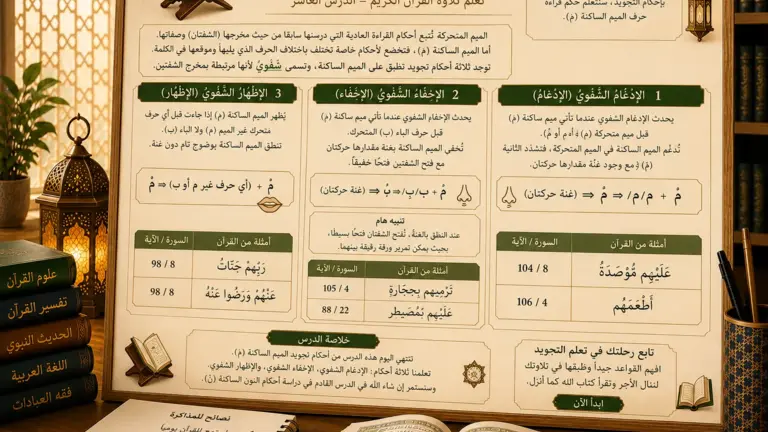 تعلم تلاوة القرآن الكريم – الدرس العاشر
بأحكام التجويد، ستتعلم حكم قراءة
حرف الميم الساكنة (مْ).
الميم المتحركة تُتبع أحكام القراءة العادية التي درسنها سابقا من حيث مخرجها (الشفتان) وصفاتها.
أما الميم الساكنة (مْ)، فتخضع لأحكام خاصة تختلف باختلاف الحرف الذي يليها وموقعها في الكلمة.
توجد ثلاثة أحكام تجويد تطبق على الميم الساكنة، وتسمى شَفَوِيَّ لأنها مرتبطة بمخرج الشفتين.
1 الإدْغَامُ الشَّفَوِيُّ (الإدْغَام)
يحدث الإدغام الشفوي عندما تأتي ميم ساكنة (مْ)
قبل ميم متحركة
تُدغَم الميم الساكنة في الميم المتحركة، فتشدد الثانية
مع وجود غنَّة مقدارها حركتان.
(غنة حركتان)
السورة / الآية
أمثلة من القرآن
104 / 8
عَلَيْهِم مُّوْصَدَةٌ
106 / 4
أَطْعَمَهُم
2 الإخْفَاءُ الشَّفَوِيُّ (الإخْفَاء)
يحدث الإخفاء الشفوي عندما تأتي ميم ساكنة (مْ)
قبل حرف الباء (ب) المتحرك.
تُخفي الميم الساكنة بغنة مقدارها حركتان
مع فتح الشفتين فتحًا خفيفًا.
(غنة حركتان)
تنبيه هام
عند النطق بالغنة، تُفتح الشفتان فتحًا بسيطًا،
بحيث يمكن تمرير ورقة رقيقة بينهما.
السورة / الآية
أمثلة من القرآن
105 / 4
تَرْمِيهِم بِحِجَارَةٍ
88 / 22
عَلَيْهِم بِمُصَيطِر
3 الإظْهَارُ الشَّفَوِيُّ (الإظْهَار)
يُظهر الميم الساكنة (مْ) إذا جاءت قبل أي حرف
متحرك غير الميم (م) ولا الباء (ب).
تنطق الميم الساكنة بوضوح تام دون غنة.
مْ + (أي حرف غير م أو ب) ⇒ مْ
السورة / الآية
أمثلة من القرآن
98 / 8
رَبِّهِمْ جَنَّاتُ
98 / 8
عَنْهُمْ وَرَضُوا عَنْهُ
خلاصة الدرس
تنتهي اليوم هذه الدرس من أحكام تجويد الميم الساكنة (مْ).
تعلمنا ثلاثة أحكام: الإدغام الشفوي، الإخفاء الشفوي، والإظهار الشفوي.
وسنستمر إن شاء الله في الدرس القادم في دراسة أحكام النون الساكنة (نْ).
تابع رحلتك في تعلم التجويد
افهم القواعد جيداً وطبقها في تلاوتك
لتنال الأجر وتقرأ كتاب الله كما أنزل.
ابدأ الآن
علوم القرآن
تفسير القرآن
الحديث النبوي
اللغة العربية
فقه العبادات
نصائح للمذاكرة